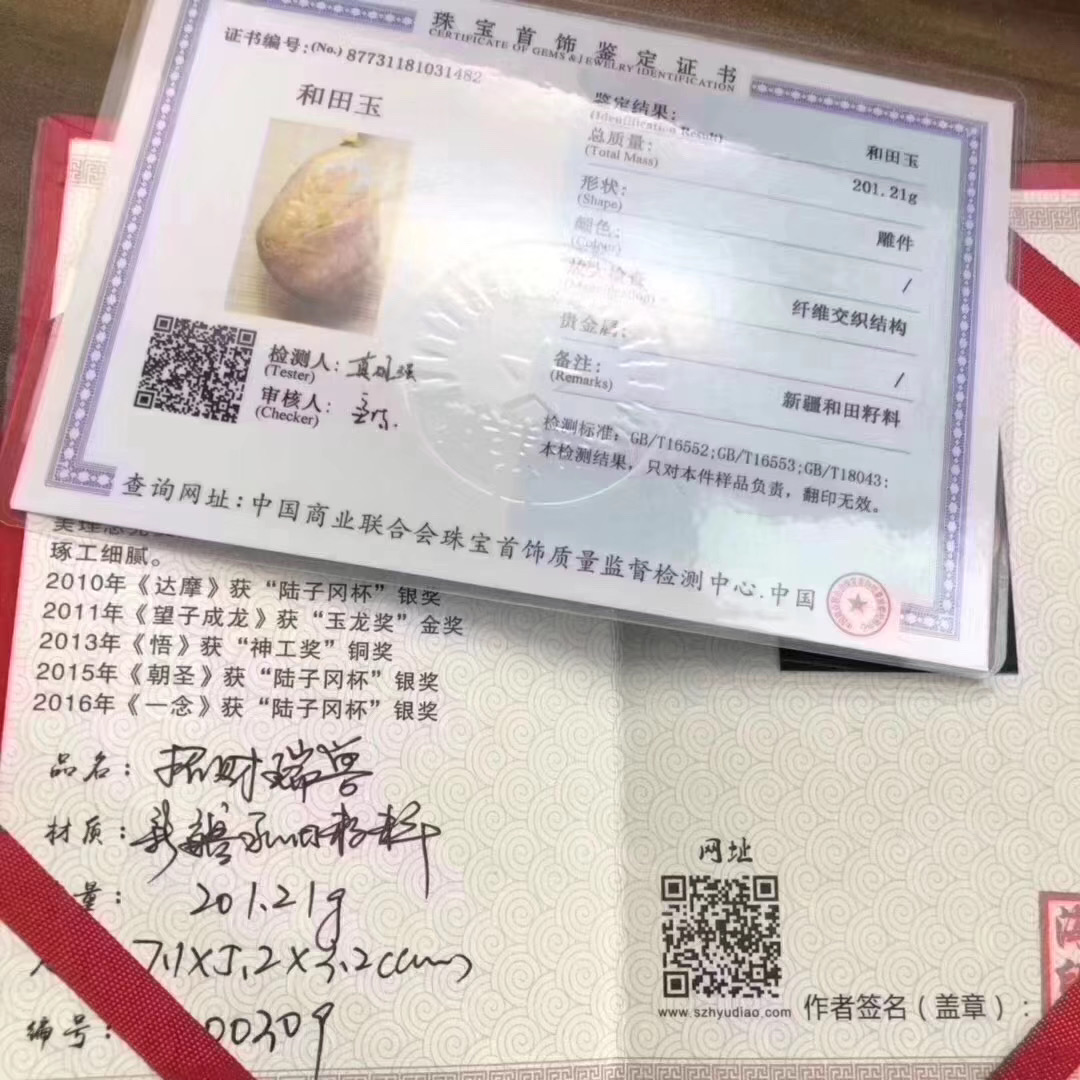 珠宝首饰鉴定证书
CERTIFICATE OF GEMS & JEWELRY IDENTIFICATION
证书编号:(No.) 87731181031482
和田玉
检测人:
(Tester)
审核人:
(Checker)
鉴定结果: 和田玉
(Identification Result)
总质量: 201.21g
(Total Mass)
形状: 雕件
(Shape)
颜色: /
(Colour)
放大检查 纤维交织结构
贵金属: /
备注: 新疆和田籽料
(Remarks)
检测标准: GB/T16552;GB/T16553;GB/T18043:
本检测结果,只对本件样品负责,翻印无效。
查询网址:中国商业联合会珠宝首饰质量监督检测中心.中国
琢工细腻。
2010年《达摩》获“陆子冈杯”银奖
2011年《望子成龙》获“玉龙奖”金奖
2013年《悟》获“神工奖”铜奖
2015年《朝圣》获“陆子冈杯”银奖
2016年《一念》获“陆子冈杯”银奖
品名:招财瑞兽
材质:新疆和田籽料
量: 201.21g
7.1X5.2X3.2cm
编号:
网址
www.szhyudiao.com
作者签名(盖章):